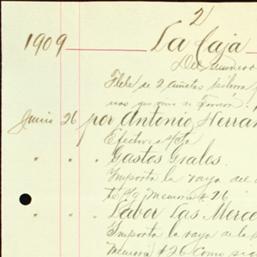 2
1909 La Caja
Flete de 2
Junio 26 por Antonio Herran
Efectivo
" " Gastos Grales.
Importa la raya del
Memora # 26
" " Labor Las Merce
Importa la raya de la
Memora # 26 Como